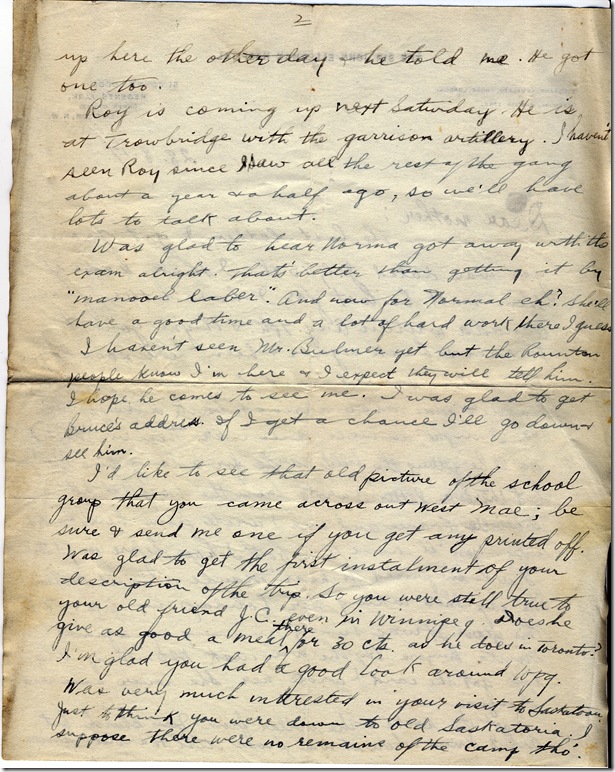 2
up here the other day & he told me. He got
one too.
Roy is coming up next Saturday. He is
at Trowbridge with the garrison artillery. I haven't
seen Roy since I saw all the rest of the gang
about a year & a half ago, so we'll have
lots to talk about.
Was glad to hear Norma got away with the
exam alright. That's better than getting it by
"manooel laber". And now for Normal eh? She'll
have a good time and a lot of hard work there I guess
I haven't seen Mr. Bulmer yet but the Rounton
people know I'm here & I expect they will tell him.
I hope he comes to see me. I was glad to get
Bruce's address. If I get a chance I'll go down &
see him.
I'd like to see that old picture of the school
group that you came across out West Mae; be
sure & send me one if you get any printed off.
Was glad to get the first instalment of your
description of the trip. So you were still true to
your old friend J.C. even in Winnipeg. Does he
give as good a meal there for 30 cts. as he does in Toronto?
I'm glad you had a good look around Wpg.
Was very much intrested in your visit to Saskatoon.
Just to think you were down to old Saskatoria. I
suppose there were no remains of the camp tho'.